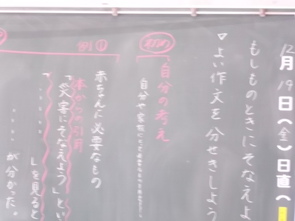 12月19日(金)日直(
もしものときにそなえよ
▽よい作文を分せきしよう
自分の考え
例①
赤ちゃんに必要なもの
「災害にそなえよう」とい
」を見ると
が分かった。